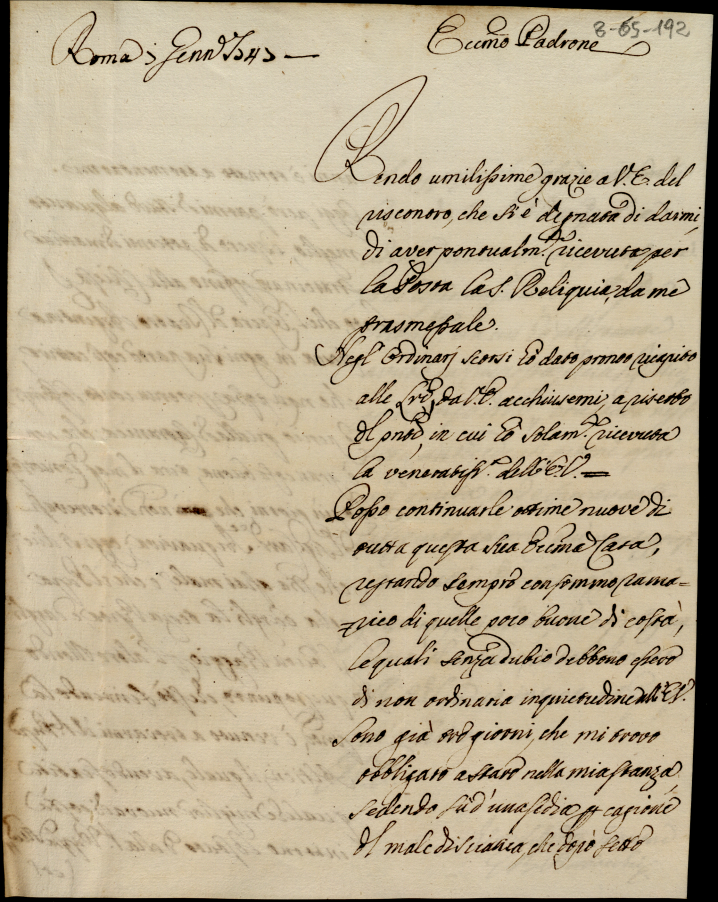 8-65-192
Roma 5 Genn.o 1743 —
Ecc.mo Padrone
Rendo umilissime grazie a V.E. del
riscontro, che si è degnata di darmi,
di aver pontualm.te ricevuta per
la Posta la S. Reliquia, da me
trasmessale.
Negl'Ordinarj scorsi hò dato pronto ricapito
alle Lre, da V.E. acchiusemi, a riserbo
del pnte, in cui hò solam.te ricevuta
la veneratiss.a dell'E.V. =
Posso continuarle ottime nuove di
tutta questa sua Ecc.ma Casa,
restando sempre con sommo rama=
rico di quelle poco buone di costà,
le quali senza dubio debbono essere
di non ordinaria inquietudine all'E.V.
Sono già otto giorni, che mi trovo
obbligato a stare nella mia stanza
sedendo sù d'una sedia p cagione
del male di sciatica, che dopò sette